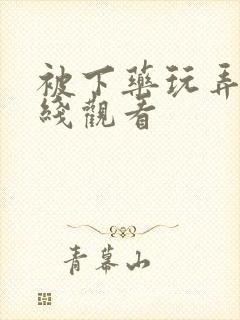 被下藥玩弄
綫觀看
青幕山